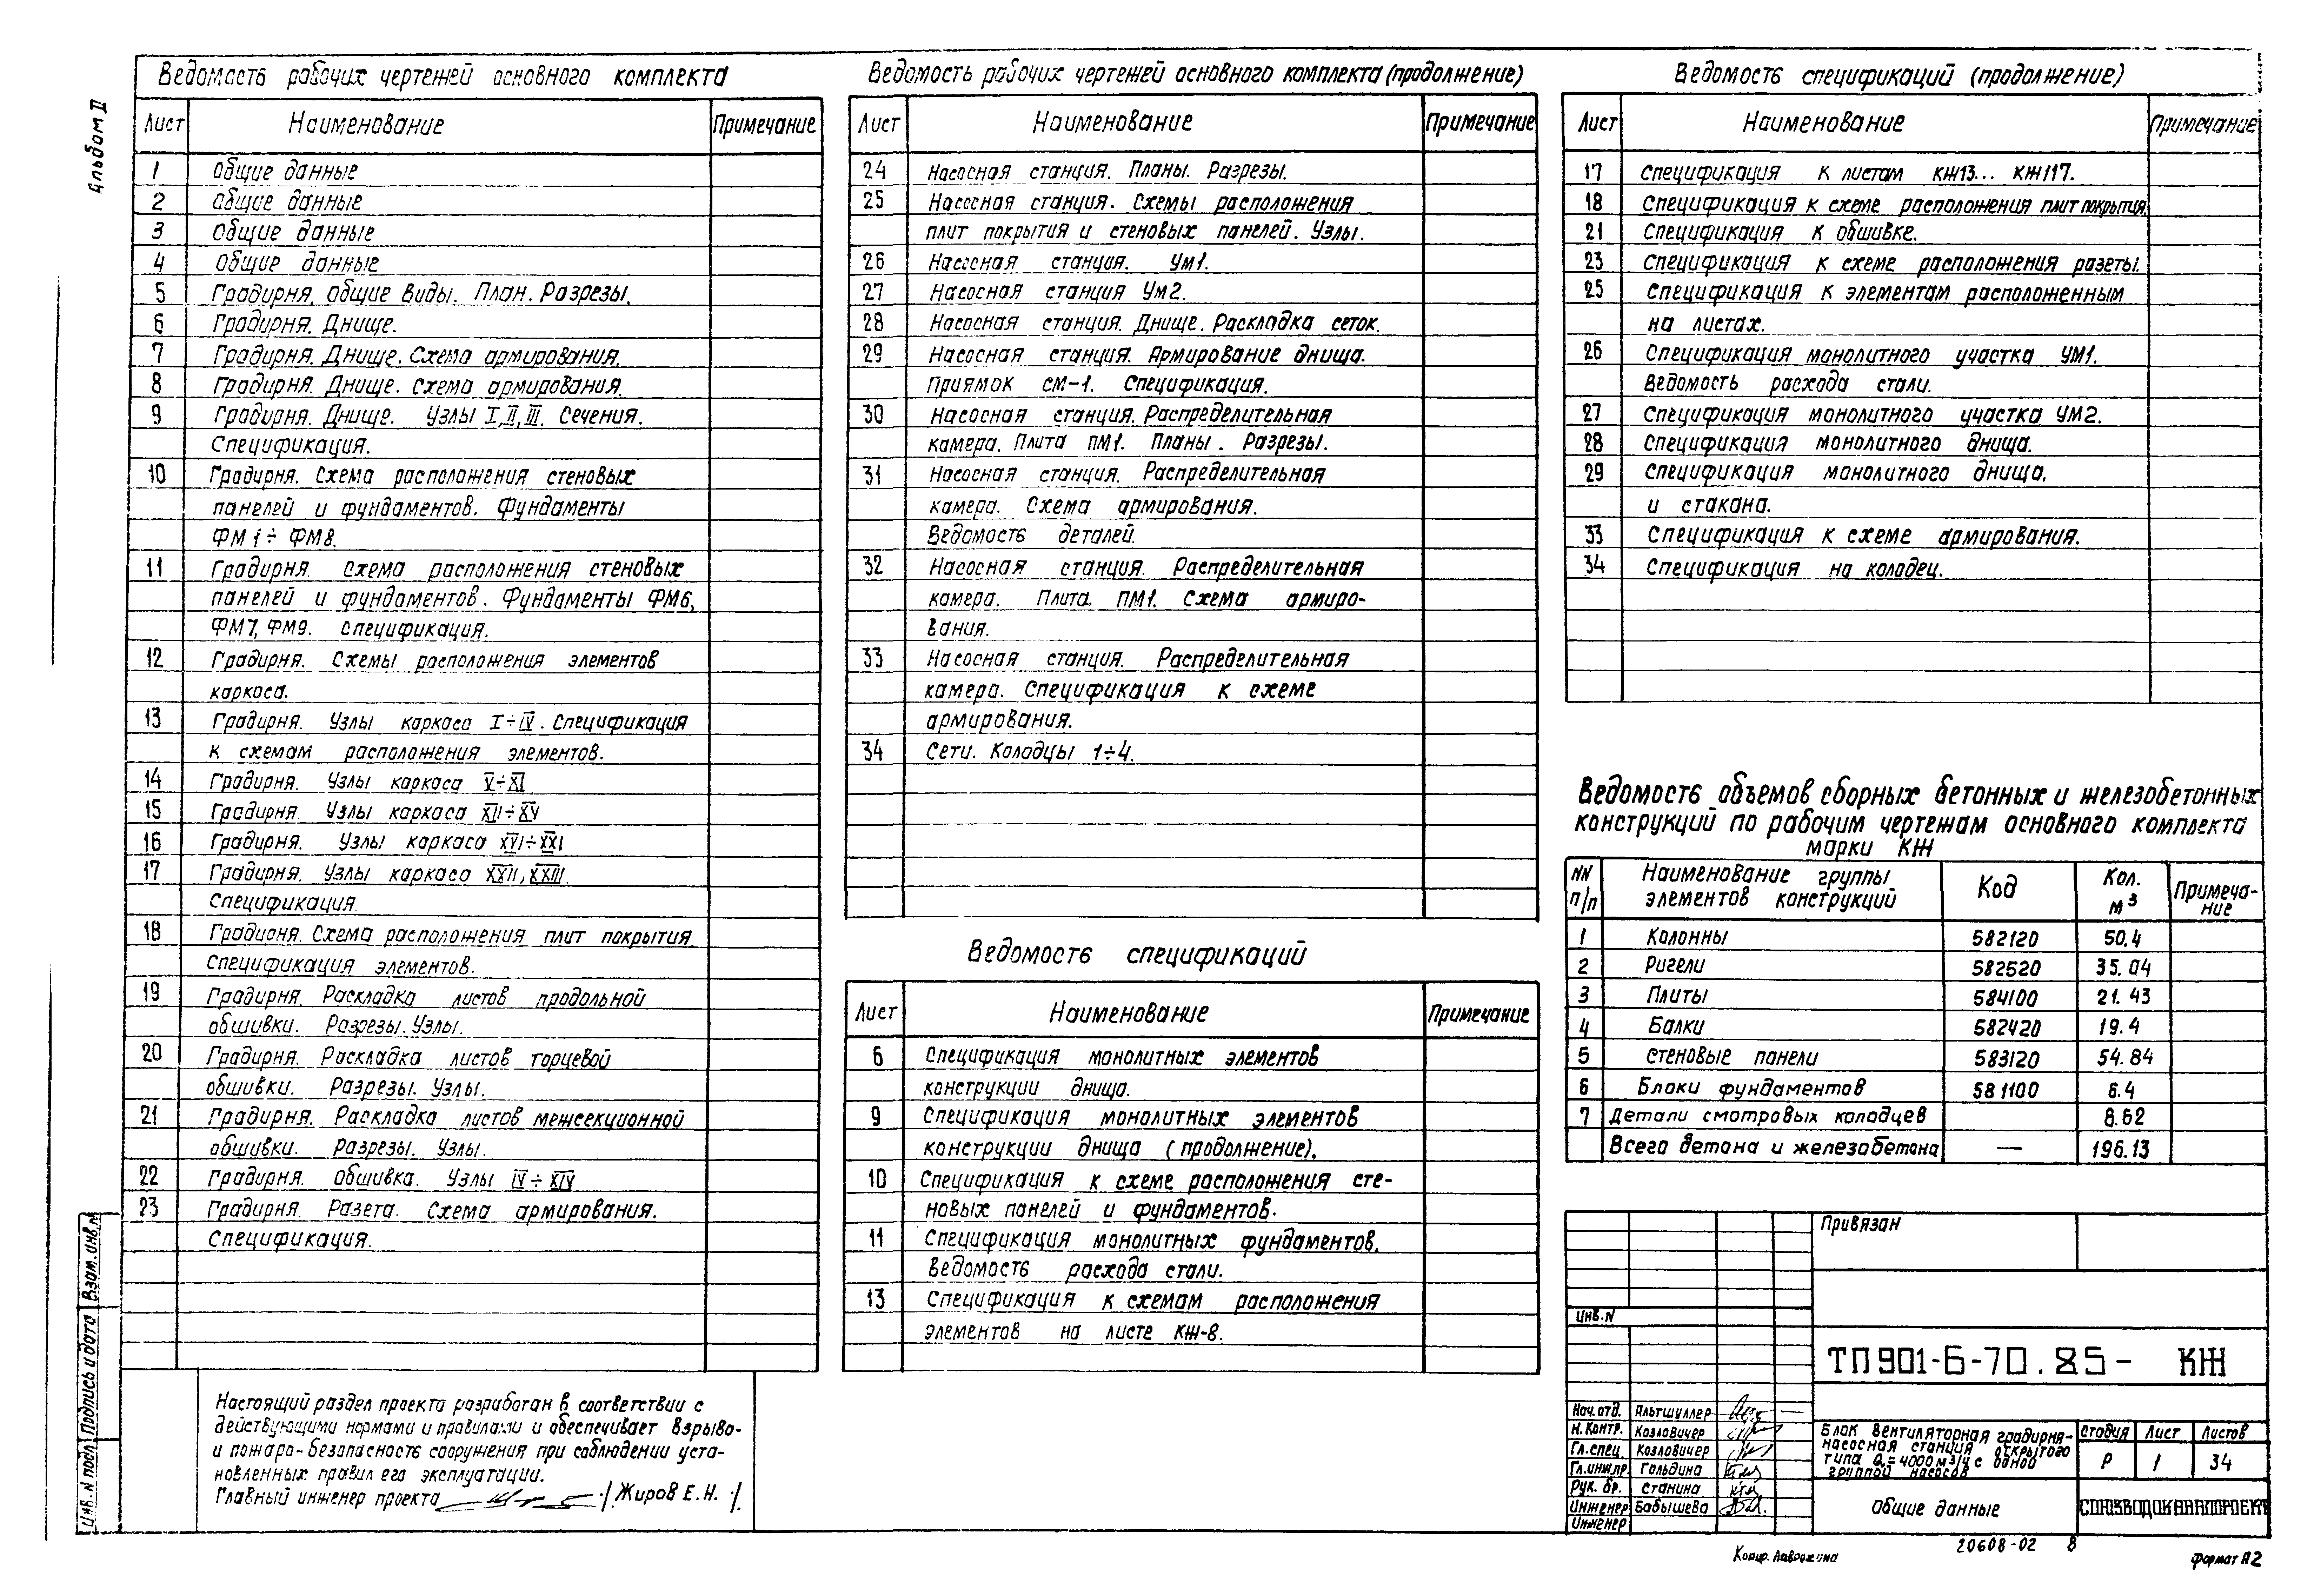 Альбом II
Ведомость рабочих чертежей основного комплекта
Лист Наименование Примечание
1 Общие данные
2 Общие данные
3 Общие данные
4 Общие данные
5 Градирня. Общие виды. План. Разрезы.
6 Градирня. Днище.
7 Градирня. Днище. Схема армирования.
8 Градирня. Днище. Схема армирования.
9 Градирня. Днище. Узлы I, II, III. Сечения.
Спецификация.
10 Градирня. Схема расположения стеновых
панелей и фундаментов. Фундаменты
ФМ1÷ФМ8.
11 Градирня. Схема расположения стеновых
панелей и фундаментов. Фундаменты ФМ6,
ФМ7, ФМ9. Спецификация.
12 Градирня. Схемы расположения элементов
каркаса.
13 Градирня. Узлы каркаса I÷IV. Спецификация
к схемам расположения элементов.
14 Градирня. Узлы каркаса V÷XI
15 Градирня. Узлы каркаса XII÷XV
16 Градирня. Узлы каркаса XVI÷XXI
17 Градирня. Узлы каркаса XXII, XXIII.
Спецификация.
18 Градирня. Схема расположения плит покрытия
Спецификация элементов.
19 Градирня. Раскладка листов продольной
обшивки. Разрезы. Узлы.
20 Градирня. Раскладка листов торцевой
обшивки. Разрезы. Узлы.
21 Градирня. Раскладка листов межсекционной
обшивки. Разрезы. Узлы.
22 Градирня. Обшивка. Узлы IV÷XIV
23 Градирня. Разета. Схема армирования.
Спецификация.
Настоящий раздел проекта разработан в соответствии с
действующими нормами и правилами и обеспечивает взрыво-
и пожаро-безопасность сооружения при соблюдении уста-
новленных правил его эксплуатации.
Главный инженер проекта /Жиров Е.Н./
Ведомость рабочих чертежей основного комплекта (продолжение)
Лист Наименование Примечание
24 Насосная станция. Планы. Разрезы.
25 Насосная станция. Схемы расположения
плит покрытия и стеновых панелей. Узлы.
26 Насосная станция. Ум1.
27 Насосная станция Ум2.
28 Насосная станция. Днище. Раскладка сеток.
29 Насосная станция. Армирование днища.
Приямок СМ-1. Спецификация.
30 Насосная станция. Распределительная
камера. Плита ПМ1. Планы. Разрезы.
31 Насосная станция. Распределительная
камера. Схема армирования.
Ведомость деталей.
32 Насосная станция. Распределительная
камера. Плита ПМ1. Схема армиро-
вания.
33 Насосная станция. Распределительная
камера. Спецификация к схеме
армирования.
34 Сети. Колодцы 1÷4.
Ведомость спецификаций
Лист Наименование Примечание
6 Спецификация монолитных элементов
конструкции днища.
9 Спецификация монолитных элементов
конструкции днища (продолжение).
10 Спецификация к схеме расположения сте-
новых панелей и фундаментов.
11 Спецификация монолитных фундаментов.
Ведомость расхода стали.
13 Спецификация к схемам расположения
элементов на листе КЖ-8.
Ведомость спецификаций (продолжение)
Лист Наименование Примечание
17 Спецификация к листам КЖ13... КЖ17.
18 Спецификация к схеме расположения плит покрытия.
21 Спецификация к обшивке.
23 Спецификация к схеме расположения разеты.
25 Спецификация к элементам расположенным
на листах.
26 Спецификация монолитного участка УМ1.
Ведомость расхода стали.
27 Спецификация монолитного участка УМ2.
28 Спецификация монолитного днища.
29 Спецификация монолитного днища.
и стакана.
33 Спецификация к схеме армирования.
34 Спецификация на колодец.
Ведомость объемов сборных бетонных и железобетонных
конструкций по рабочим чертежам основного комплекта
марки КЖ
NN п/п Наименование группы элементов конструкций Код Кол. м³ Примеча-ние
1 Колонны 582120 50.4
2 Ригели 582520 35.04
3 Плиты 584100 21.43
4 Балки 582420 19.4
5 Стеновые панели 583120 54.84
6 Блоки фундаментов 581100 6.4
7 Детали смотровых колодцев 8.62
Всего бетона и железобетона — 196.13
Привязан
Инв. N
ТП901-6-70.85- КЖ
Нач. отд. Альтшуллер
Н. Контр. Козловичер
Гл. спец. Козловичер
Гл. инж. пр. Гольдина
Рук. бр. Станина
Инженер Бабышева
Инженер
Блок вентиляторная градирня-
насосная станция открытого
типа Q=4000 м³/ч с одной
группой насосов
Стадия Лист Листов
Р 1 34
Общие данные
СОЮЗВОДОКАНАЛПРОЕКТ
20608-02 8
Формат А2
Взам. инв. N
Подпись и дата
Инв. N подл.